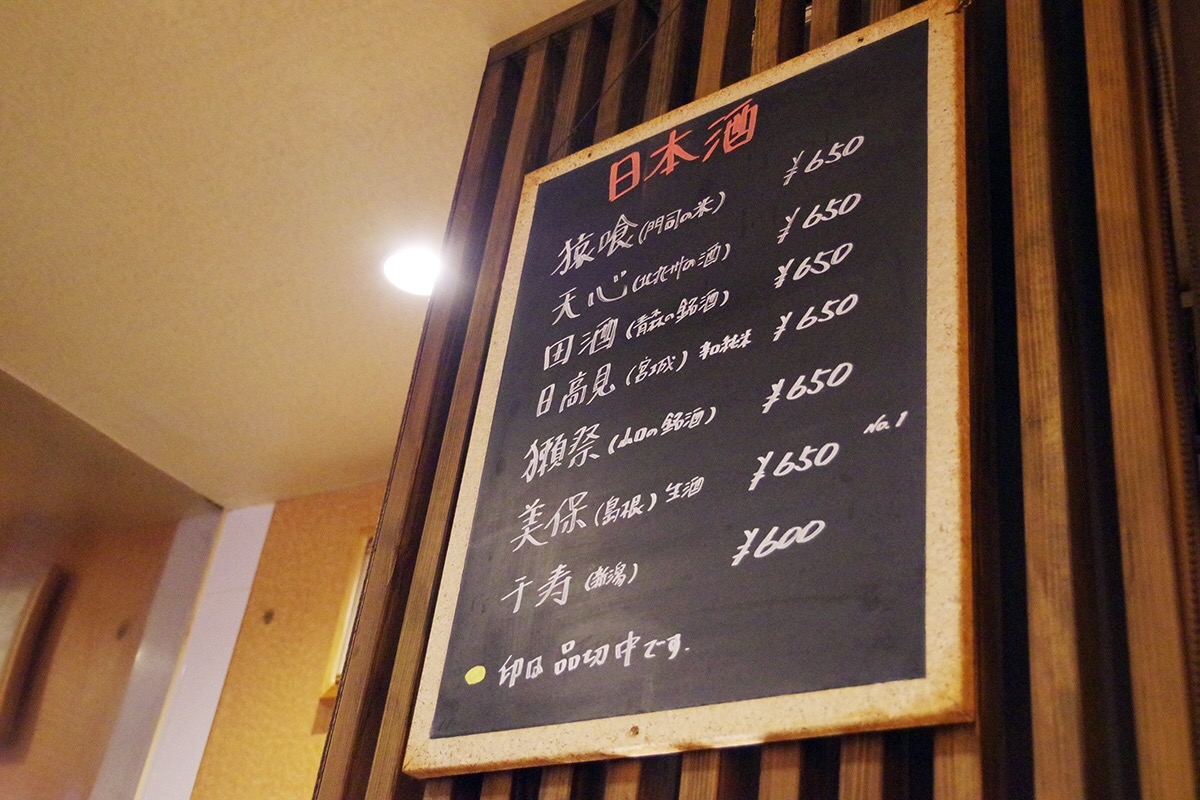 日本酒
猿喰(門司の米) ¥650
天心(北九州の酒) ¥650
田酒(青森の銘酒) ¥650
日高見(宮城)辛口純米 ¥650
獺祭(山口の銘酒) ¥650
美保(島根)生酒 ¥650 No.1
千寿(新潟) ¥600
印は品切中です.